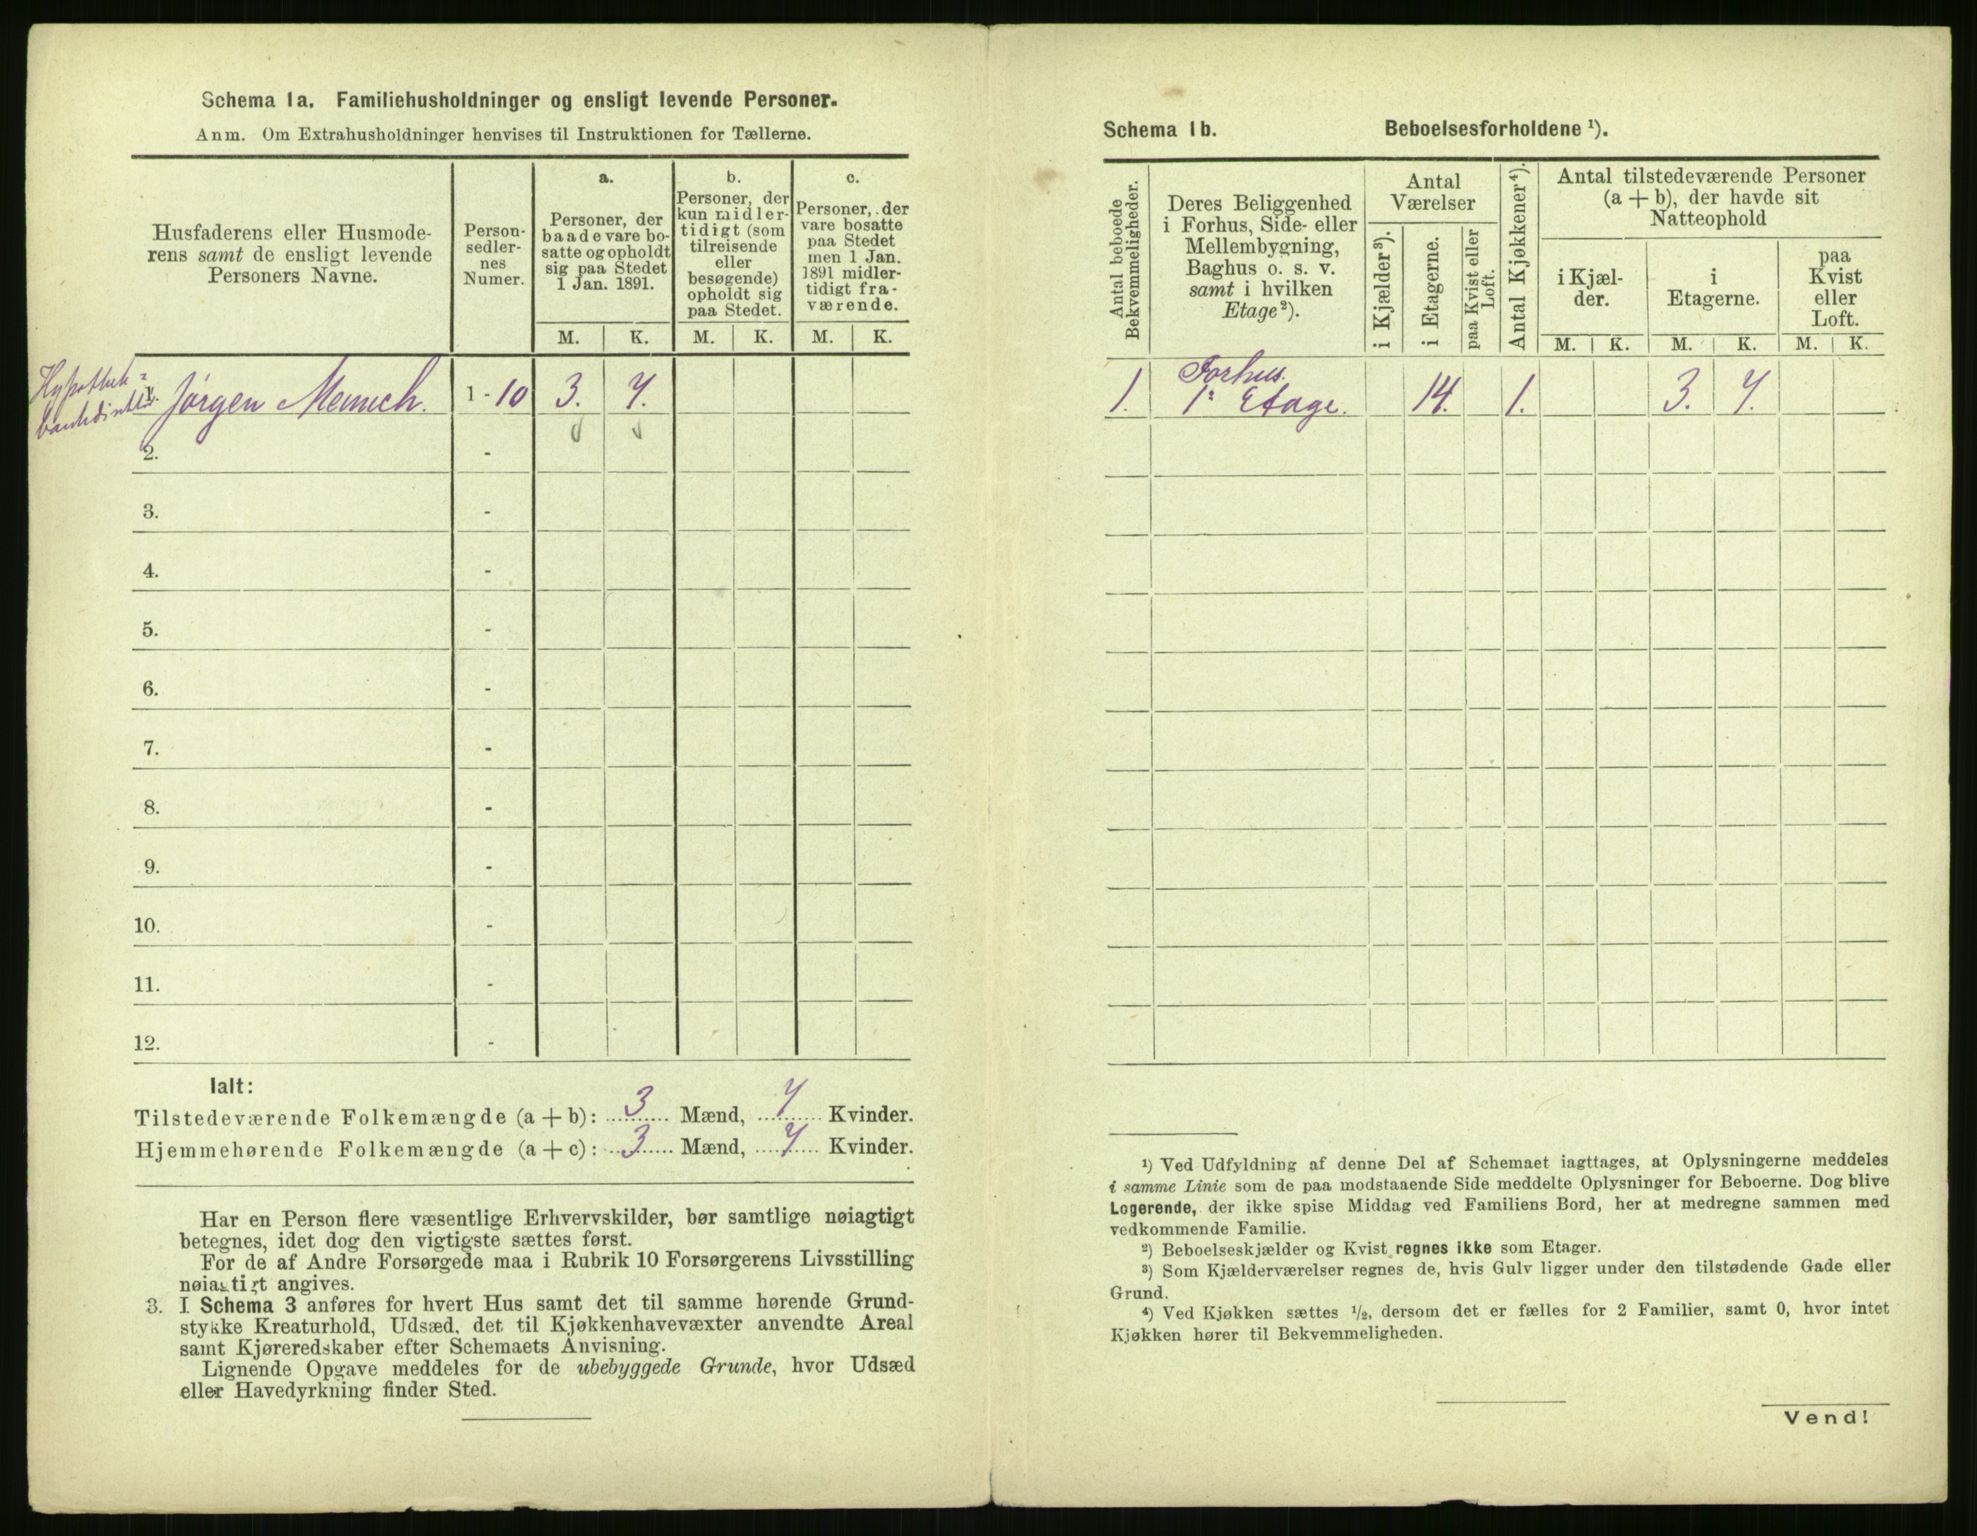 Schema 1a. Familiehusholdninger og ensligt levende Personer.
Anm. Om Extrahusholdninger henvises til Instruktionen for Tællerne.
Husfaderens eller Husmode-
rens samt de ensligt levende
Personers Navne.
Person-
sedler-
nes
Numer.
a.
Personer, der
baade vare bo-
satte og opholdt
sig paa Stedet
1 Jan. 1891.
b.
Personer, der
kun midler-
tidigt (som
tilreisende
eller
besøgende)
opholdt sig
paa Stedet.
c.
Personer, der
vare bosatte
paa Stedet
men 1 Jan.
1891 midler-
tidigt fra-
værende.
M. K. M. K. M. K.
Hypothek-
1. Jørgen Meinich. 1 - 10 3. 7.
2. -
3. -
4. -
5. -
6. -
7. -
8. -
9. -
10. -
11. -
12. -
Ialt:
Tilstedeværende Folkemængde (a + b): 3 Mænd, 7 Kvinder.
Hjemmehørende Folkemængde (a + c): 3 Mænd, 7 Kvinder.
Har en Person flere væsentlige Erhvervskilder, bør samtlige nøiagtigt
betegnes, idet dog den vigtigste sættes først.
For de af Andre Forsørgede maa i Rubrik 10 Forsørgerens Livsstilling
nøiagtigt angives.
3. I Schema 3 anføres for hvert Hus samt det til samme hørende Grund-
stykke Kreaturhold, Udsæd, det til Kjøkkenhavevæxter anvendte Areal
samt Kjøreredskaber efter Schemaets Anvisning.
Lignende Opgave meddeles for de ubebyggede Grunde, hvor Udsæd
eller Havedyrkning finder Sted.
Schema 1b. Beboelsesforholdene ¹).
Antal beboede
Bekvemmeligheder.
Deres Beliggenhed
i Forhus, Side- eller
Mellembygning,
Baghus o. s. v.
samt i hvilken
Etage ²).
Antal
Værelser
i Kjælder ³).
i Etagerne.
paa Kvist eller
Loft.
Antal Kjøkkener ⁴).
Antal tilstedeværende Personer
(a + b), der havde sit
Natteophold
i Kjæl-
der.
i
Etagerne.
paa
Kvist
eller
Loft.
M. K. M. K. M. K.
Forhus.
1. 1ª Etage. 14. 1. 3. 7.
¹) Ved Udfyldning af denne Del af Schemaet iagttages, at Oplysningerne meddeles
i samme Linie som de paa modstaaende Side meddelte Oplysninger for Beboerne. Dog blive
Logerende, der ikke spise Middag ved Familiens Bord, her at medregne sammen med
vedkommende Familie.
²) Beboelseskjælder og Kvist regnes ikke som Etager.
³) Som Kjælderværelser regnes de, hvis Gulv ligger under den tilstødende Gade eller
Grund.
⁴) Ved Kjøkken sættes ½, dersom det er fælles for 2 Familier, samt 0, hvor intet
Kjøkken hører til Bekvemmeligheden.
Vend!